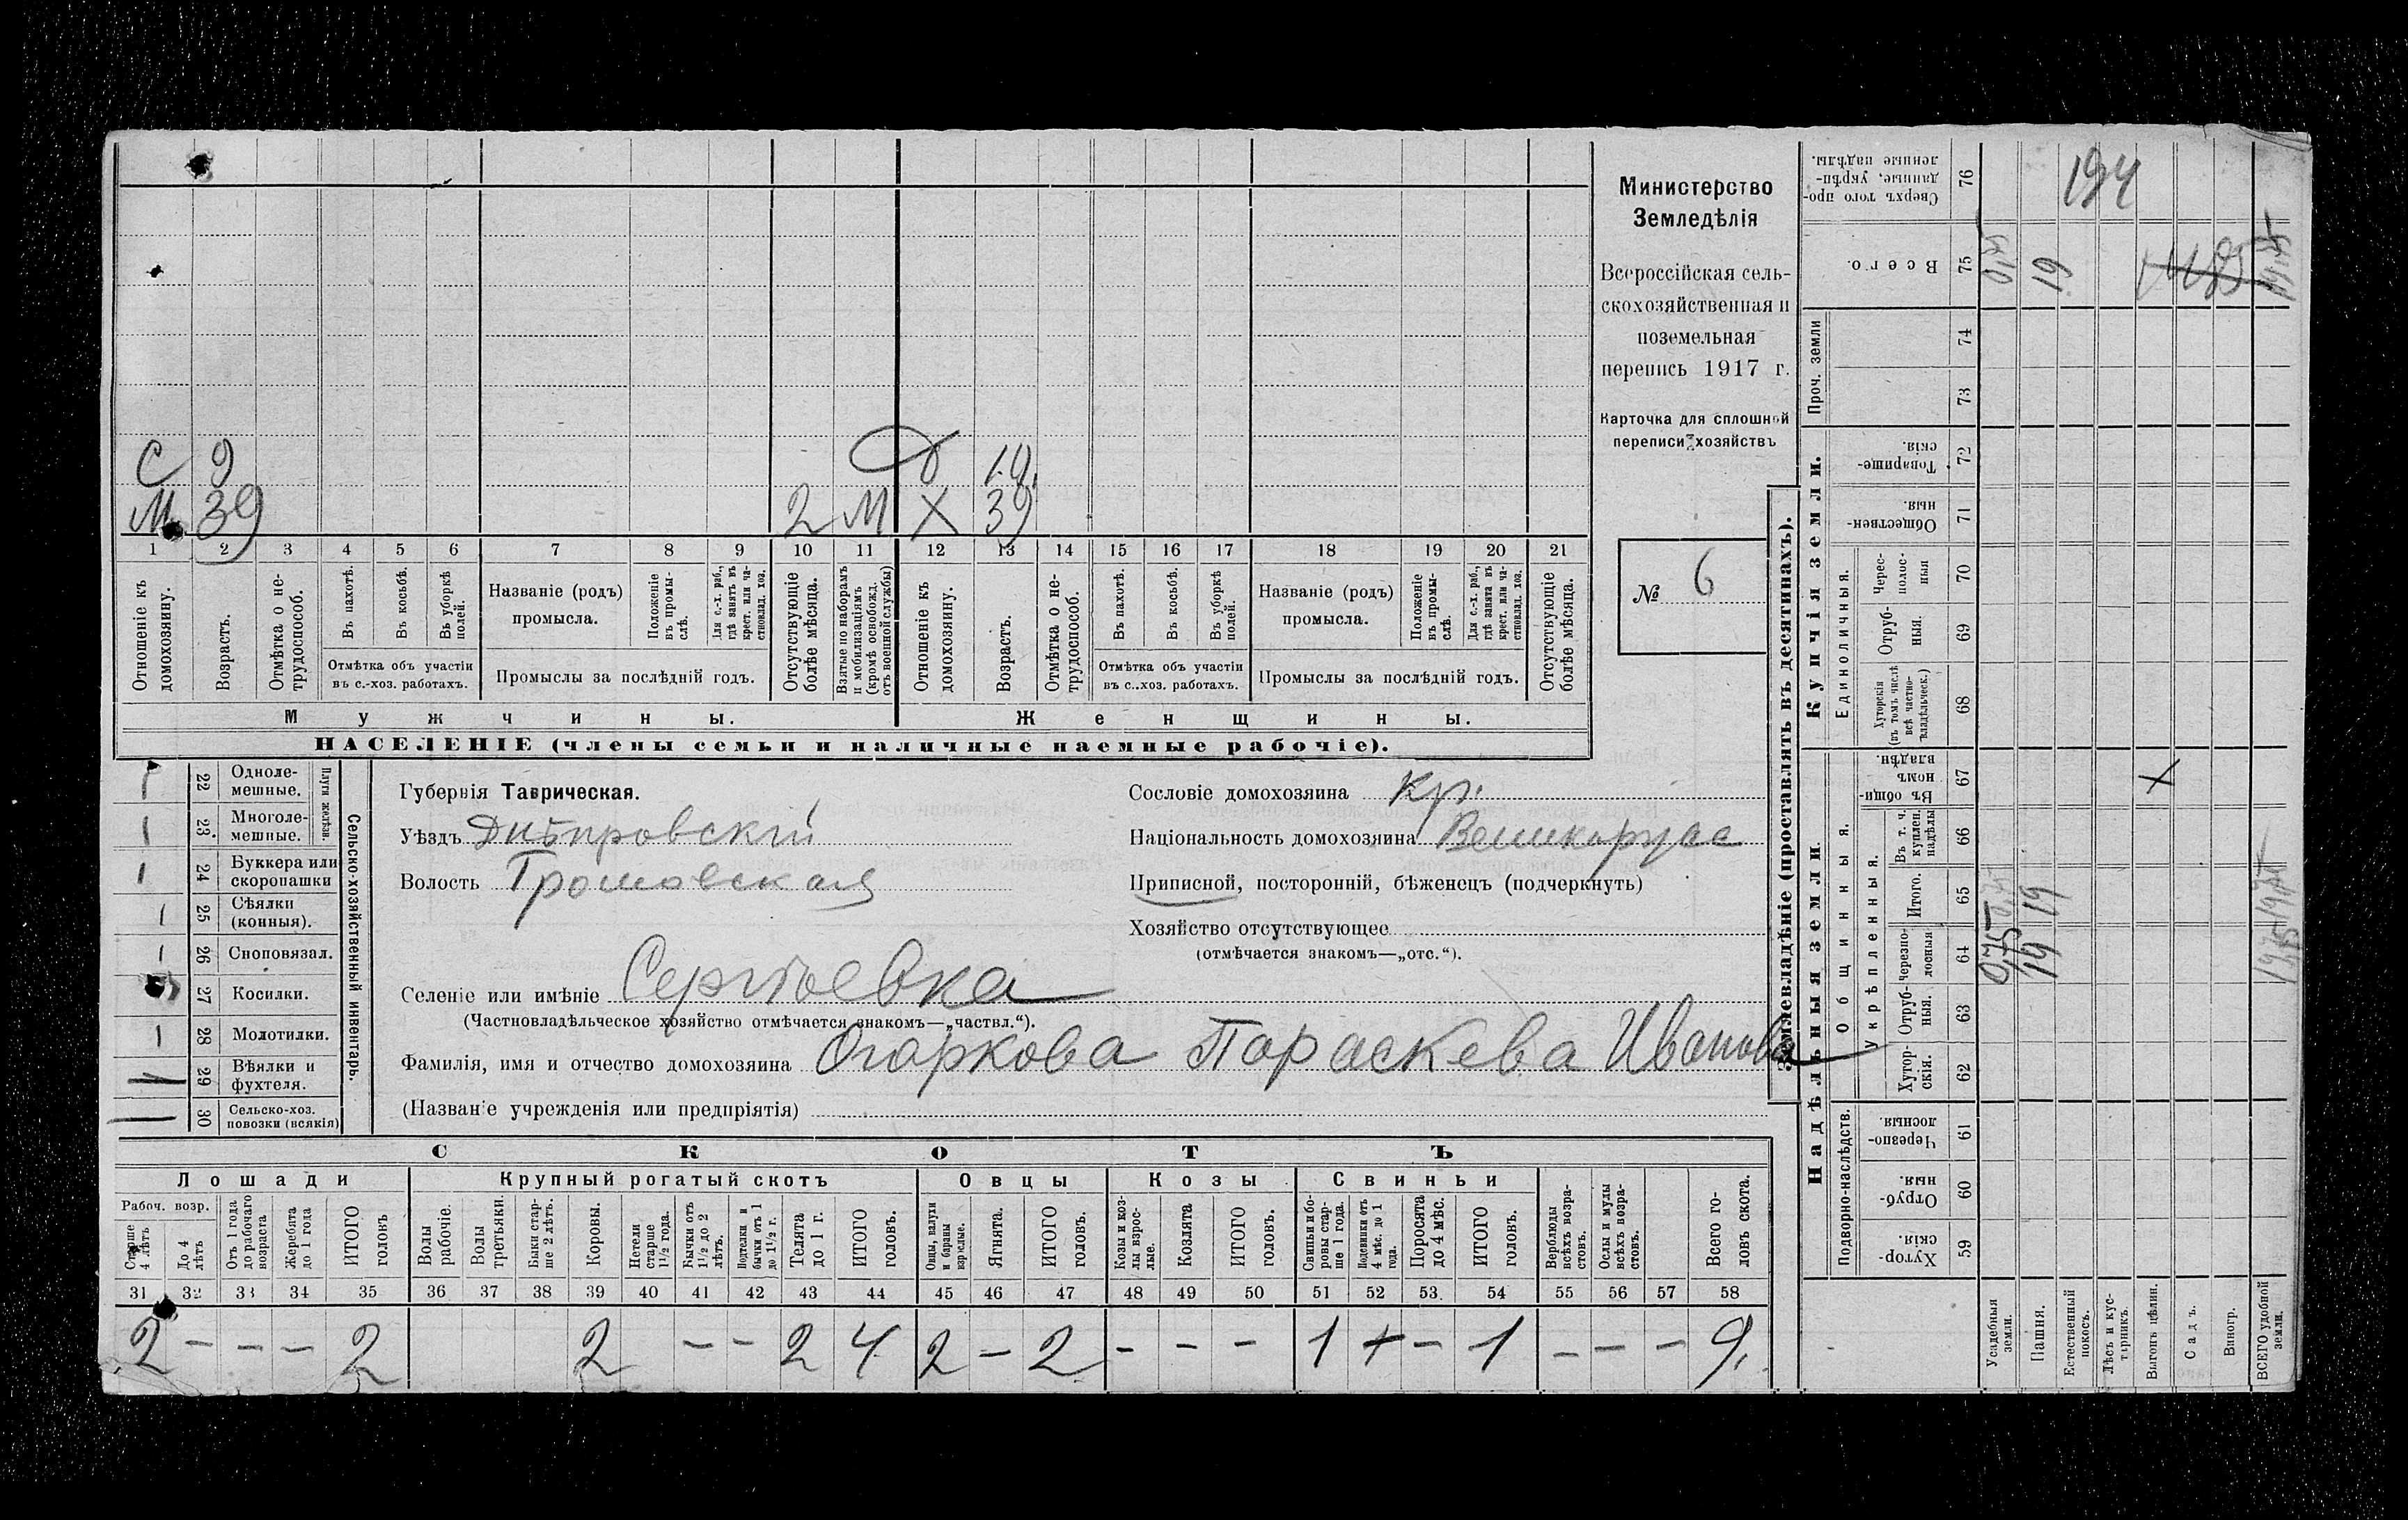 С 9 б 1.9.
М 39 2 М Х 39
1 2 3 4 5 6 7 8 9 10 11 12 13 14 15 16 17 18 19 20 21
Отношеніе къ домохозяину.
Возрастъ.
Отмѣтка о не-трудоспособ.
Въ пахотѣ.
Въ косьбѣ.
Въ уборкѣ полей.
Отмѣтка объ участіи въ с.-хоз. работахъ.
Названіе (родъ) промысла.
Положеніе въ промы-слѣ.
Для с.-х. раб., гдѣ занятъ въ крест. или ча-стновлад. хоз.
Промыслы за послѣдній годъ.
Отсутствующіе болѣе мѣсяца.
Взятые по наборамъ и мобилизаціямъ (кромѣ освобожд. отъ военной службы)
Отношеніе къ домохозяину.
Возрастъ.
Отмѣтка о не-трудоспособ.
Въ пахотѣ.
Въ косьбѣ.
Въ уборкѣ полей.
Отмѣтка объ участіи въ с..хоз. работахъ.
Названіе (родъ) промысла.
Положеніе въ промы-слѣ.
Для с.-х. раб., гдѣ занята въ крест. или ча-стновлад. хоз.
Промыслы за послѣдній годъ.
Отсутствующіе болѣе мѣсяца.
Мужчины.
Женщины.
НАСЕЛЕНІЕ (члены семьи и наличные наемные рабочіе).
Министерство
Земледѣлія
Всероссійская сель-
скохозяйственная и
поземельная
перепись 1917 г.
Карточка для сплошной
переписи хозяйствъ
№ 6
22 Одноле-мешные.
23 Многоле-мешные.
Плуги желѣзн.
24 Буккера или скоропашки
25 Сѣялки (конныя).
26 Сноповязал.
27 Косилки.
28 Молотилки.
29 Вѣялки и фухтеля.
30 Сельско-хоз. повозки (всякія)
Сельско-хозяйственный инвентарь.
Губернія Таврическая.
Уѣздъ Днѣпровскій
Волость Громовская
Сословіе домохозяина кр.
Національность домохозяина Великорусс
Приписной, посторонній, бѣженецъ (подчеркнуть)
Хозяйство отсутствующее
(отмѣчается знакомъ—„отс.“).
Селеніе или имѣніе Сергѣевка
(Частновладѣльческое хозяйство отмѣчается знакомъ—„частвл.“).
Фамилія, имя и отчество домохозяина Огаркова Параскева Иванова
(Названіе учрежденія или предпріятія)
СКОТЪ
Лошади
Крупный рогатый скотъ
Овцы
Козы
Свиньи
Рабоч. возр.
Старше 4 лѣтъ
До 4 лѣтъ
Отъ 1 года до рабочаго возраста
Жеребята до 1 года
ИТОГО головъ
Волы рабочіе.
Волы третьяки.
Быки стар-ше 2 лѣтъ.
Коровы.
Нетели старше 1½ года.
Бычки отъ 1½ до 2 лѣтъ.
Подтелки и бычки отъ 1 до 1½ г.
Телята до 1 г.
ИТОГО головъ.
Овцы, валухи и бараны взрослые.
Ягнята.
ИТОГО головъ.
Козы и коз-лы взрос-лые.
Козлята
ИТОГО головъ.
Свиньи и бо-ровы стар-ше 1 года.
Подсвинки отъ 4 мѣс. до 1 года.
Поросята до 4 мѣс.
ИТОГО головъ.
Верблюды всѣхъ возра-стовъ.
Ослы и мулы всѣхъ возра-стовъ.
Всего го-ловъ скота.
31 32 33 34 35 36 37 38 39 40 41 42 43 44 45 46 47 48 49 50 51 52 53. 54 55 56 57 58
2 – – – 2 2 – – 2 4 2 – 2 – – – 1 + – 1 – – – 9.
Землевладѣніе (проставлять въ десятинахъ).
Купчія земли.
Надѣльныя земли.
76 Сверхъ того про-данные, укрѣп-ленные надѣлы.
194
75 Всего.
19
Проч. земли
74
73
72 Товарище-скія.
71 Обществен-ныя.
Единоличныя.
70 Черес-полос-ныя
69 Отруб-ныя.
68 Хуторскія (въ томъ числѣ всѣ частно-владѣльческ.)
Общинныя.
67 Въ общин-номъ владѣн.
Х
Укрѣпленныя.
66 Въ т. ч. куплен. надѣлы
65 Итого.
19
64 Черезпо-лосныя
0,75 19
63 Отруб-ныя.
62 Хутор-скія.
Подворно-наслѣдств.
61 Черезпо-лосныя.
60 Отруб-ныя.
59 Хутор-скія.
Усадебныя земли.
Пашня.
Естественный покосъ.
Лѣсъ и кус-тарникъ.
Выгонъ цѣлин.
Садъ.
Виногр.
ВСЕГО удобной земли.